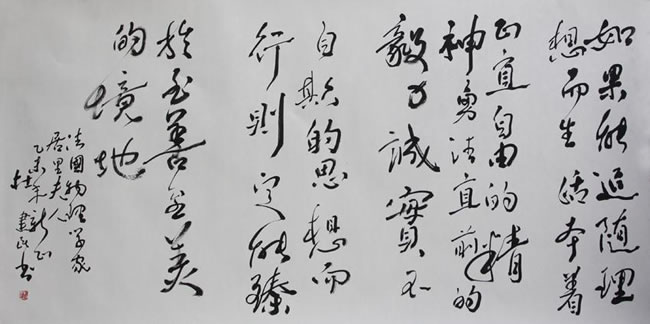 如果能追随理
想而生活本着
正直自由的精
神勇往直前的
毅力誠實不
自欺的思想而
行則定能臻
於至善至美
的境地
法國物理学家
居里夫人
乙未年新正
书